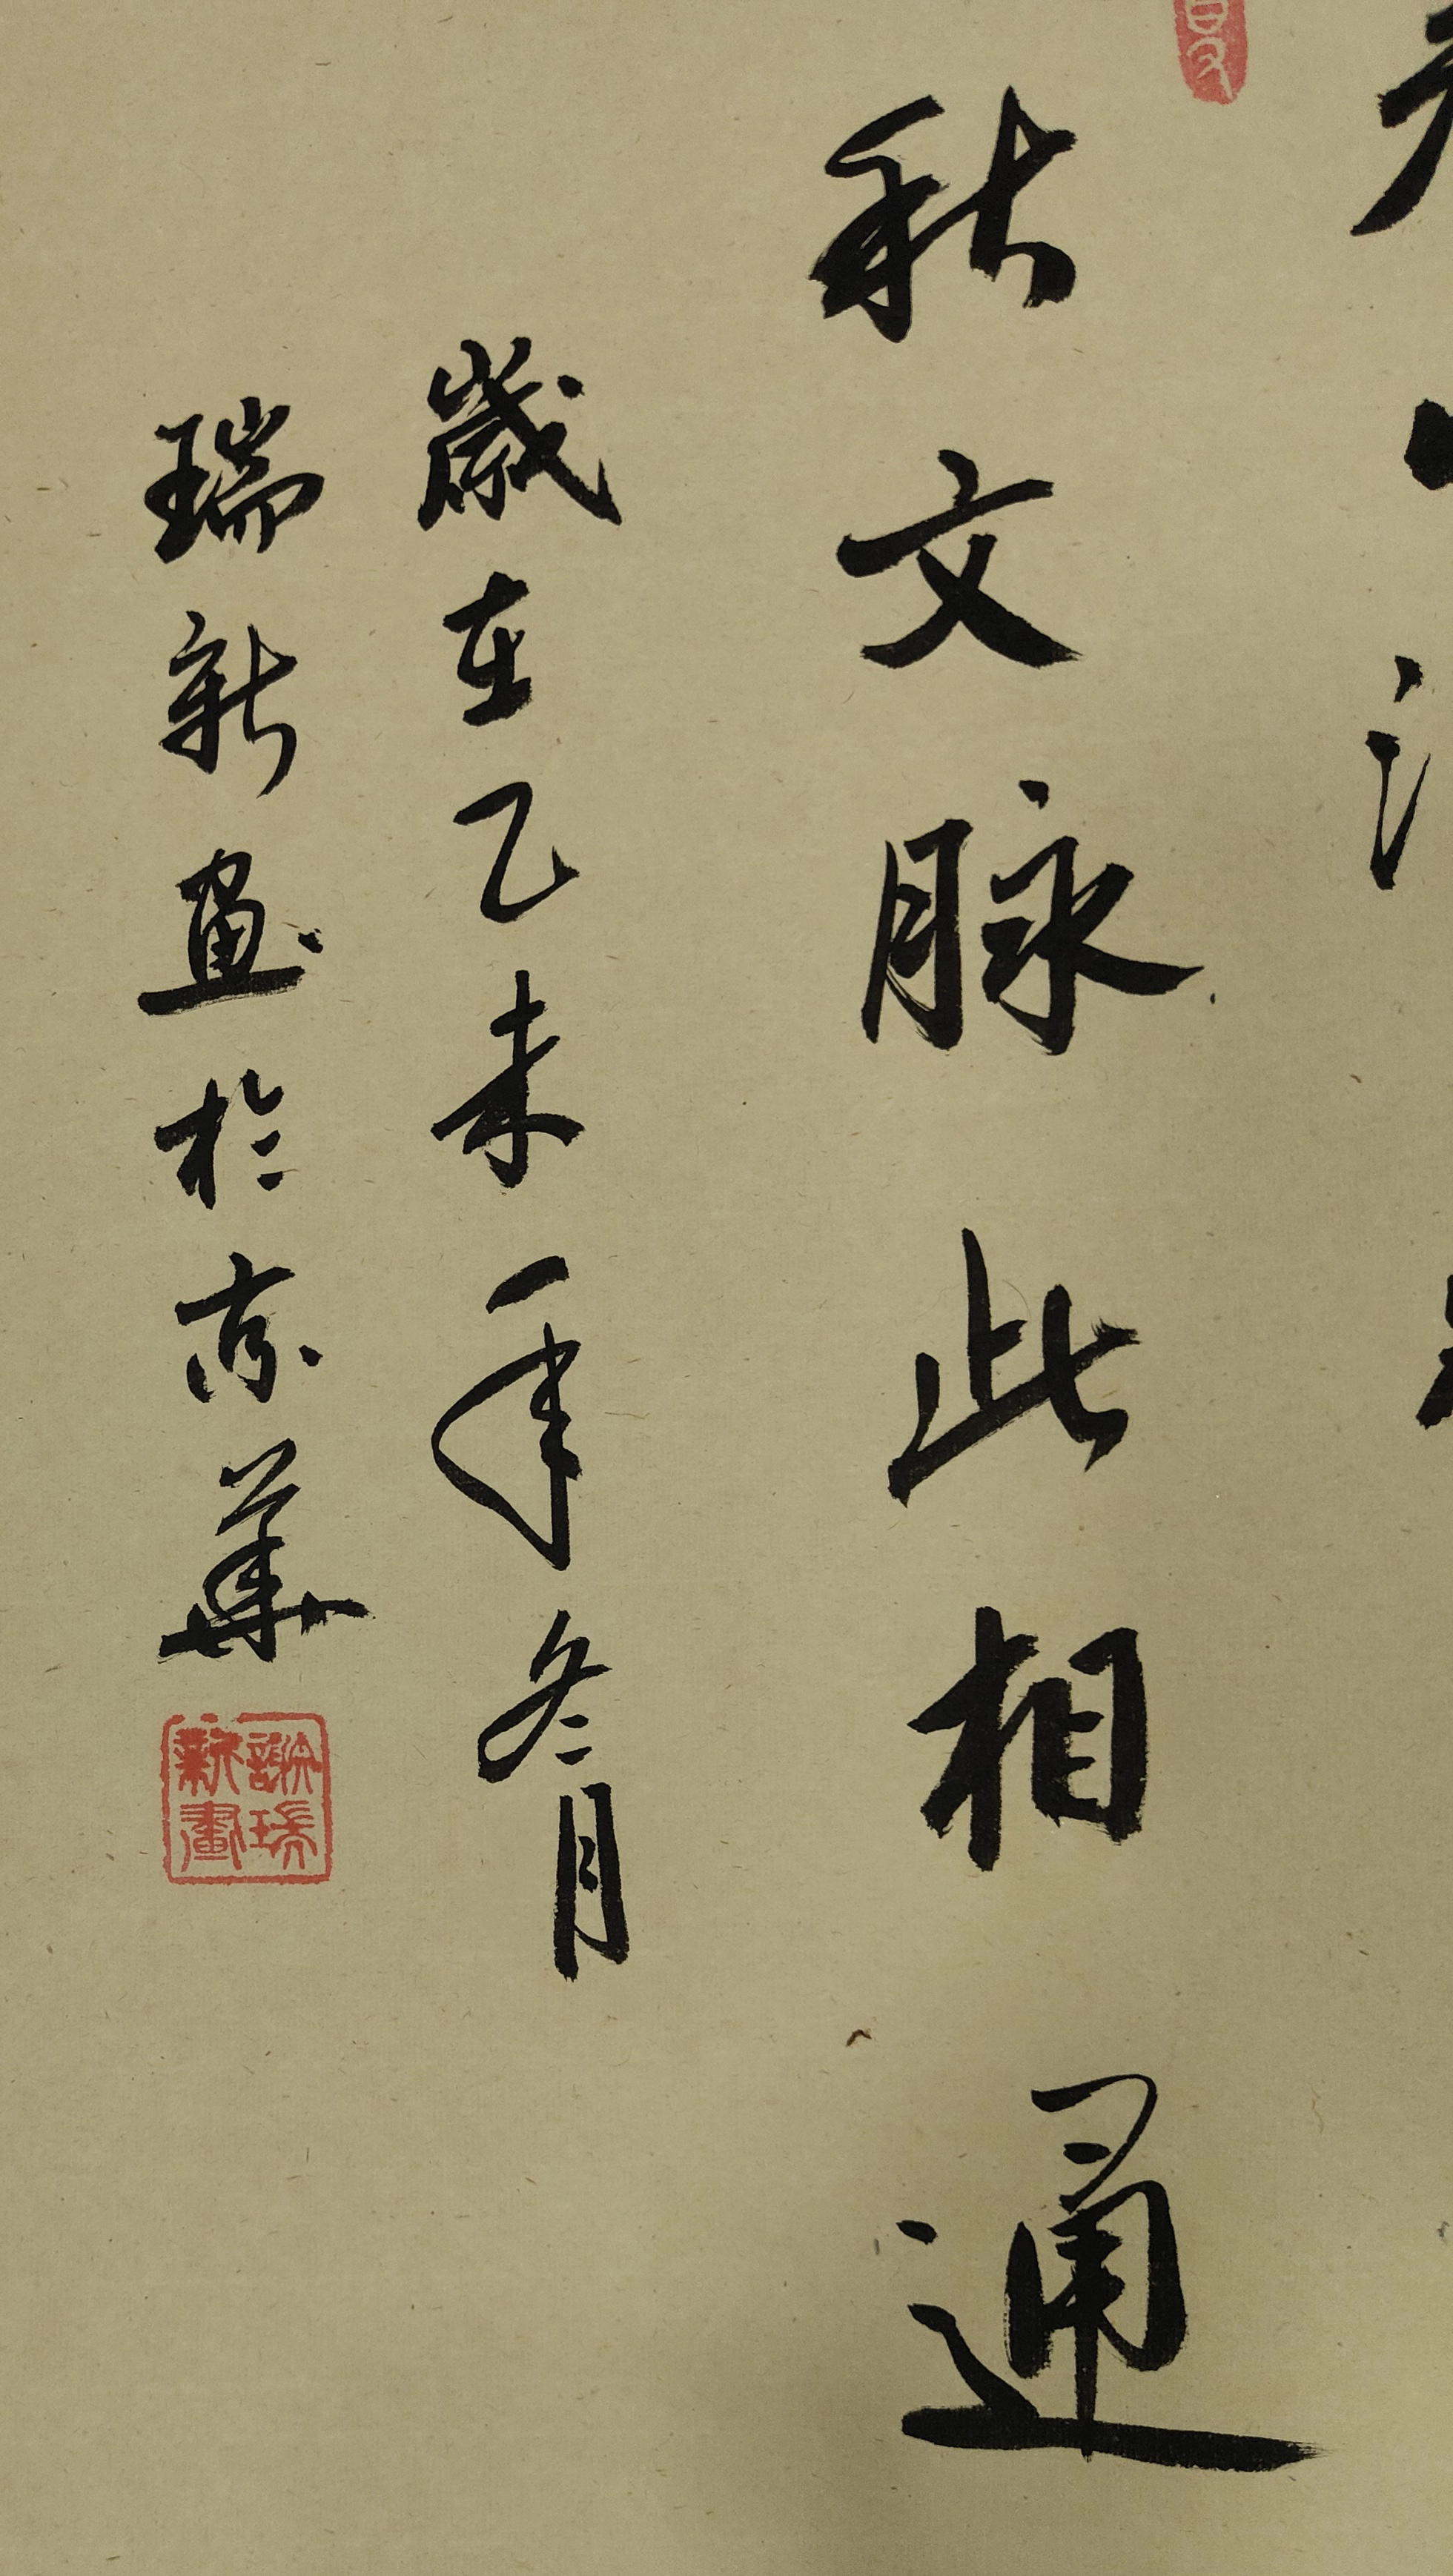 秋文脉此相通
歲在乙未年冬月
瑞新畫於京華
謝瑞新畫